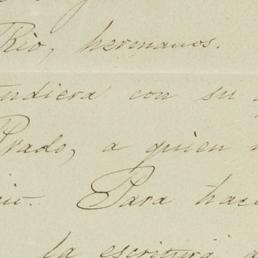 Rio, hermanos.
endiera con su
Prado, a quien
Para hac
la escritura a